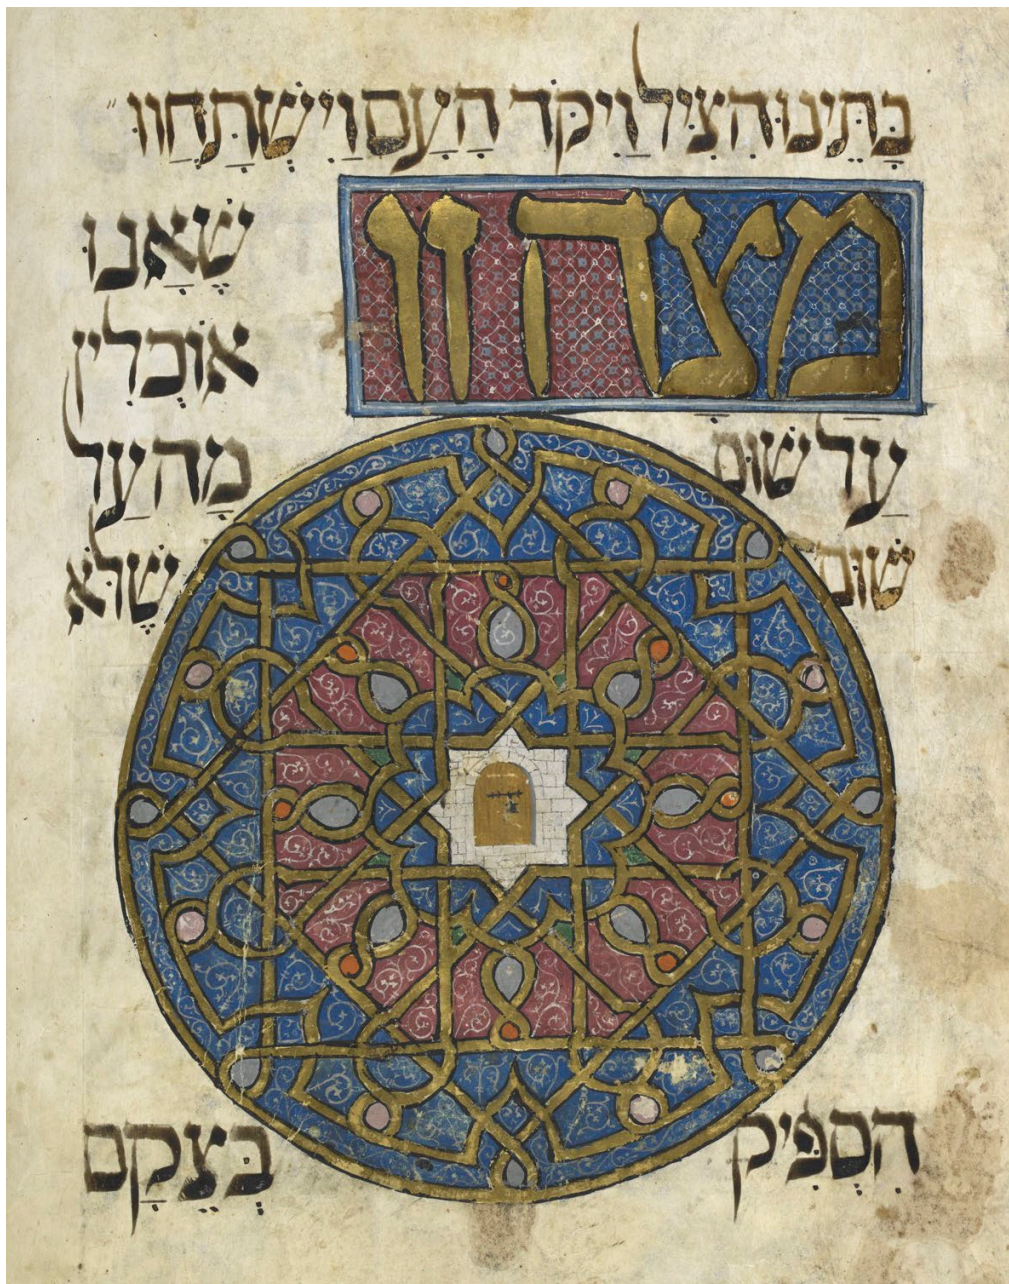 בַּתֵּינוּ הִצִּיל וַיִּקֹּד הַעַם וַיִּשְׁתַּחֲווּ
מצה זו שֶׁאַנוּ
אוֹכְלִין
עַל שׁוּם מַה עַל
שׁוּם שֶׁלֹּא
הִסְפִּיק בְּצֵקַם